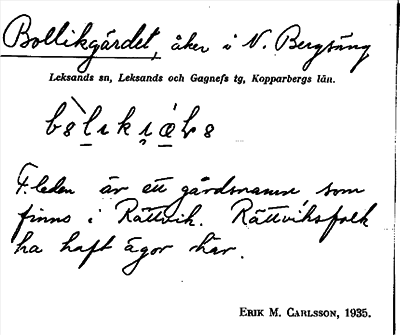 Bollikgärdet, åker i N. Bergsäng
Leksands sn, Leksands och Gagnefs tg, Kopparbergs län.
F.leden är ett gårdsnamn som
finns i Rättvik. Rättviksfolk
ha haft ägor här.
ERIK M. CARLSSON, 1935.